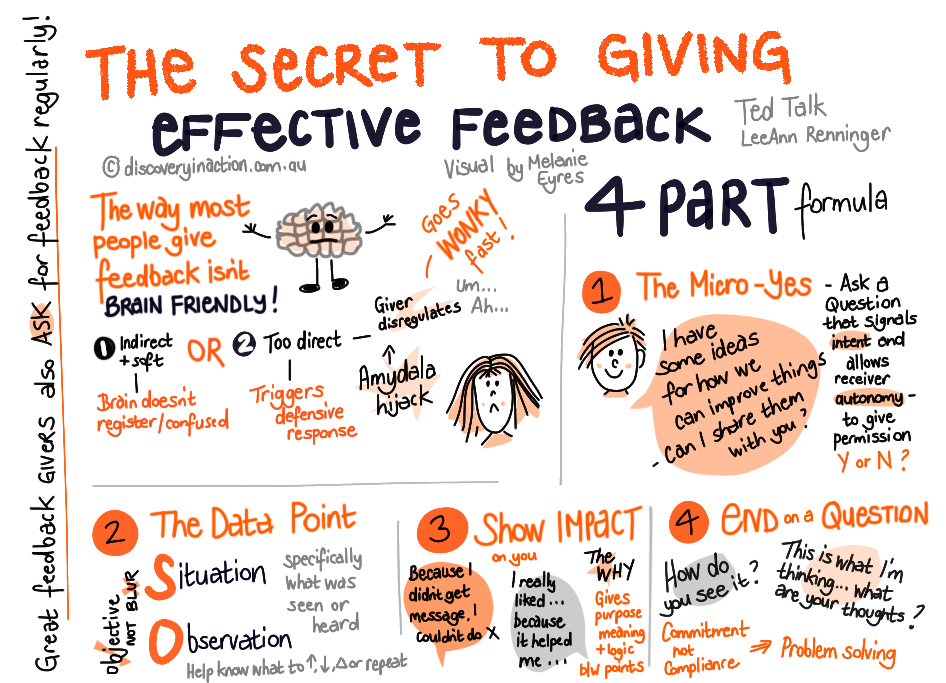 Great feedback Givers also ASK for feedback regularly!
THE SECRET TO GIVING
EFFECTIVE FEEDBACK
Ted Talk
LeeAnn Renninger
© discoveryinaction.com.au
Visual by Melanie
Eyres
The way most
people give
feedback isn't
BRAIN FRIENDLY!
Goes
WONKY
fast!
Um...
Ah...
1 Indirect
+ soft
OR
2 Too direct
Giver
disregulates
Brain doesn't
register/confused
Triggers
defensive
response
Amydala
hijack
4 PART formula
1 The Micro-Yes
I have
some ideas
for how we
can improve things
- Can I share them
with you?
- Ask a
Question
that signals
intent and
allows
receiver
autonomy -
to give
permission
Y or N?
2 The Data Point
Situation
Observation
specifically
what was
seen or
heard
Objective
NOT BLUR
Help know what to ↑, ↓, Δ or repeat
3 Show IMPACT
on you
Because I
didn't get
message, I
couldn't do X
I really
liked...
because
it helped
me...
The
WHY
Gives
purpose
meaning
+ logic
b/w points
4 END on a QUESTION
How do
you see it?
This is what I'm
thinking... what
are your thoughts?
Commitment
not
Compliance
⇒ Problem solving